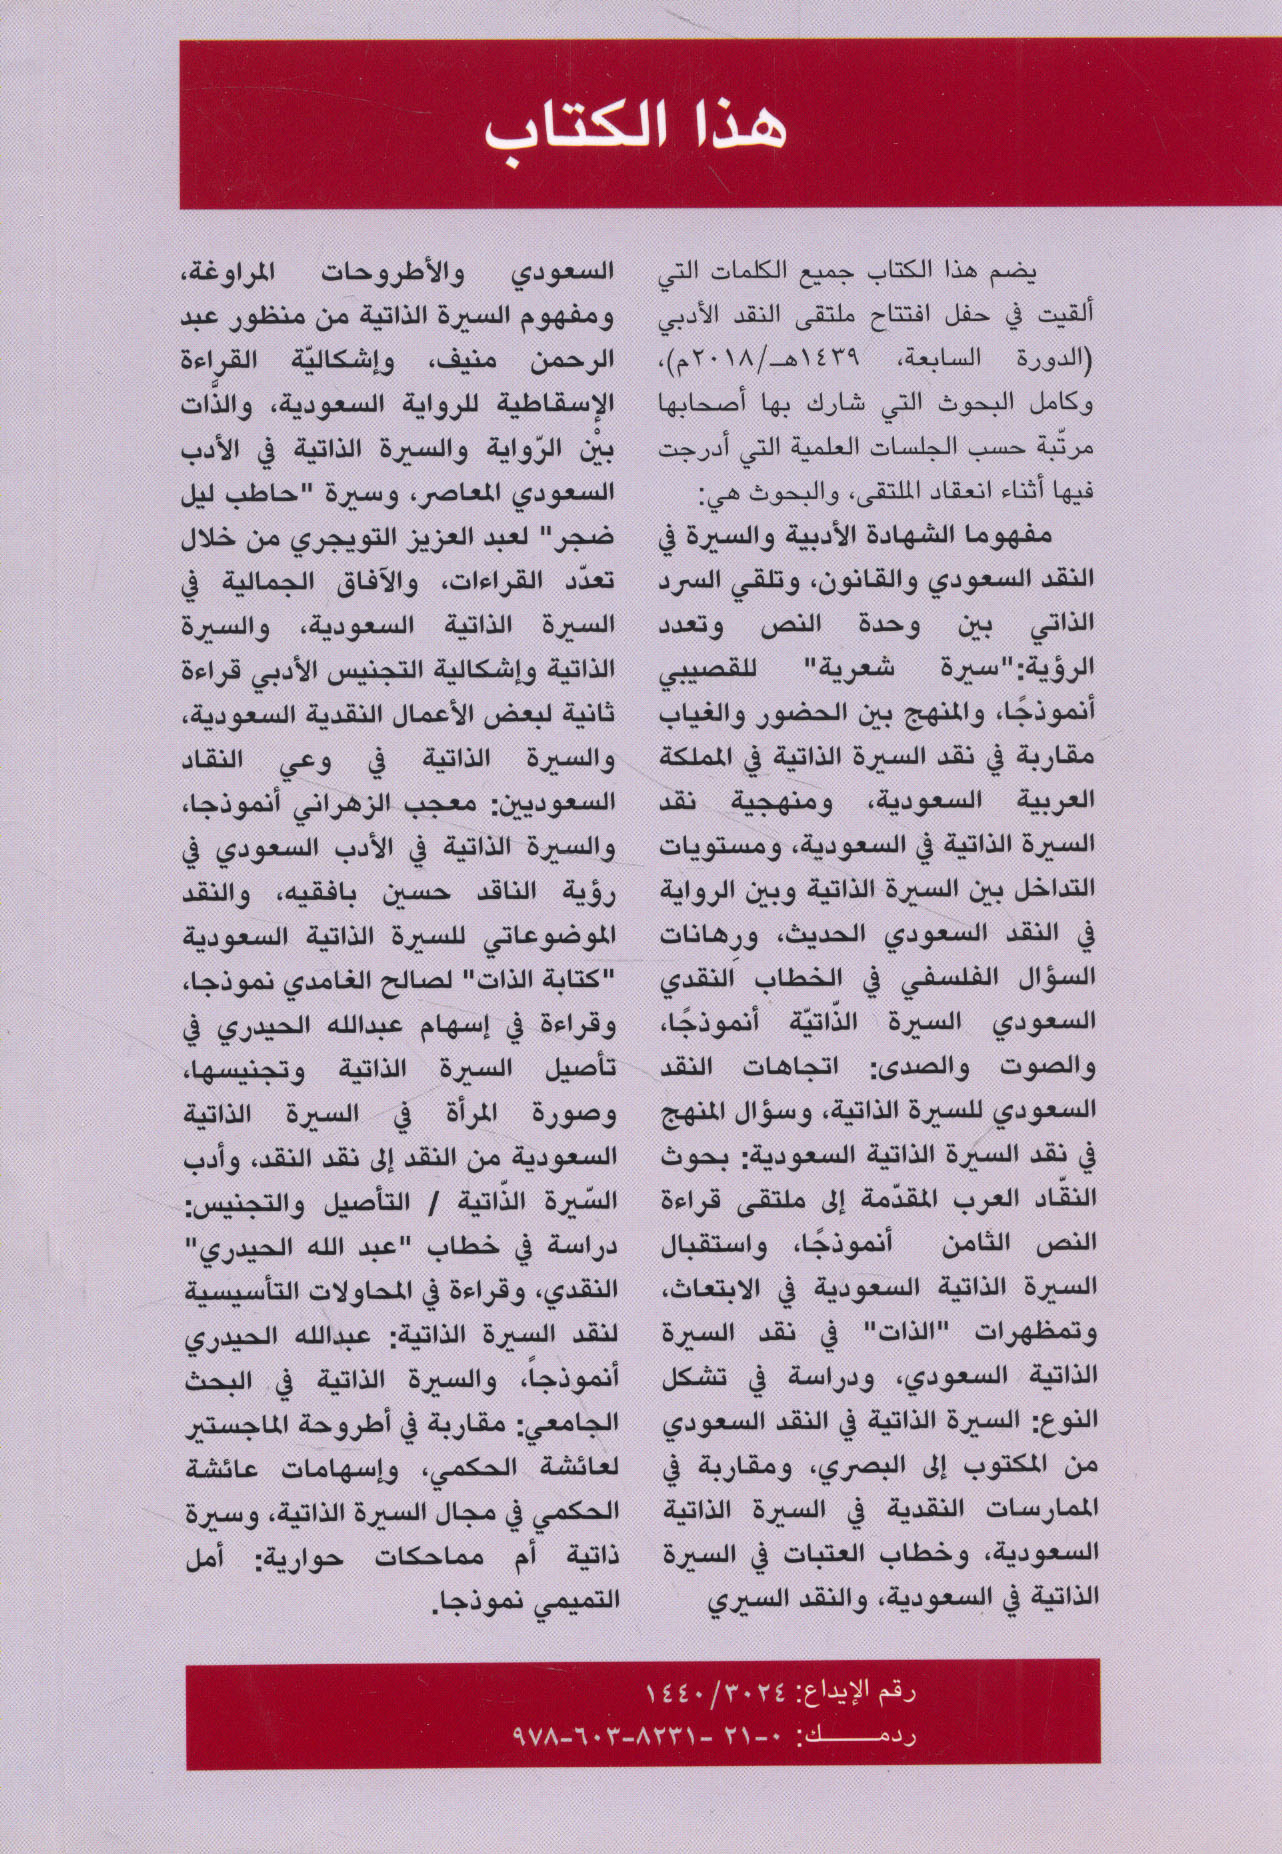 هذا الكتاب
يضم هذا الكتاب جميع الكلمات التي
ألقيت في حفل افتتاح ملتقى النقد الأدبي
(الدورة السابعة، ١٤٣٩هـ/٢٠١٨م)،
وكامل البحوث التي شارك بها أصحابها
مرتّبة حسب الجلسات العلمية التي أدرجت
فيها أثناء انعقاد الملتقى، والبحوث هي:
مفهوما الشهادة الأدبية والسيرة في
النقد السعودي والقانون، وتلقي السرد
الذاتي بين وحدة النص وتعدد
الرؤية:"سيرة شعرية" للقصيبي
أنموذجًا، والمنهج بين الحضور والغياب
مقاربة في نقد السيرة الذاتية في المملكة
العربية السعودية، ومنهجية نقد
السيرة الذاتية في السعودية، ومستويات
التداخل بين السيرة الذاتية وبين الرواية
في النقد السعودي الحديث، ورِهانات
السؤال الفلسفي في الخطاب النقدي
السعودي السيرة الذّاتيّة أنموذجًا،
والصوت والصدى: اتجاهات النقد
السعودي للسيرة الذاتية، وسؤال المنهج
في نقد السيرة الذاتية السعودية: بحوث
النقّاد العرب المقدّمة إلى ملتقى قراءة
النص الثامن أنموذجًا، واستقبال
السيرة الذاتية السعودية في الابتعاث،
وتمظهرات "الذات" في نقد السيرة
الذاتية السعودي، ودراسة في تشكل
النوع: السيرة الذاتية في النقد السعودي
من المكتوب إلى البصري، ومقاربة في
الممارسات النقدية في السيرة الذاتية
السعودية، وخطاب العتبات في السيرة
الذاتية في السعودية، والنقد السيري
السعودي والأطروحات المراوغة،
ومفهوم السيرة الذاتية من منظور عبد
الرحمن منيف، وإشكاليّة القراءة
الإسقاطية للرواية السعودية، والذَّات
بيْن الرّواية والسيرة الذاتية في الأدب
السعودي المعاصر، وسيرة "حاطب ليل
ضجر" لعبد العزيز التويجري من خلال
تعدّد القراءات، والآفاق الجمالية في
السيرة الذاتية السعودية، والسيرة
الذاتية وإشكالية التجنيس الأدبي قراءة
ثانية لبعض الأعمال النقدية السعودية،
والسيرة الذاتية في وعي النقاد
السعوديين: معجب الزهراني أنموذجا،
والسيرة الذاتية في الأدب السعودي في
رؤية الناقد حسين بافقيه، والنقد
الموضوعاتي للسيرة الذاتية السعودية
"كتابة الذات" لصالح الغامدي نموذجا،
وقراءة في إسهام عبدالله الحيدري في
تأصيل السيرة الذاتية وتجنيسها،
وصورة المرأة في السيرة الذاتية
السعودية من النقد إلى نقد النقد، وأدب
السّيرة الذّاتية / التأصيل والتجنيس:
دراسة في خطاب "عبد الله الحيدري"
النقدي، وقراءة في المحاولات التأسيسية
لنقد السيرة الذاتية: عبدالله الحيدري
أنموذجاً، والسيرة الذاتية في البحث
الجامعي: مقاربة في أطروحة الماجستير
لعائشة الحكمي، وإسهامات عائشة
الحكمي في مجال السيرة الذاتية، وسيرة
ذاتية أم مماحكات حوارية: أمل
التميمي نموذجا.
رقم الإيداع: ١٤٤٠/٣٠٢٤
ردمـــــك: ٠-٢١ -٨٢٣١-٦٠٣-٩٧٨